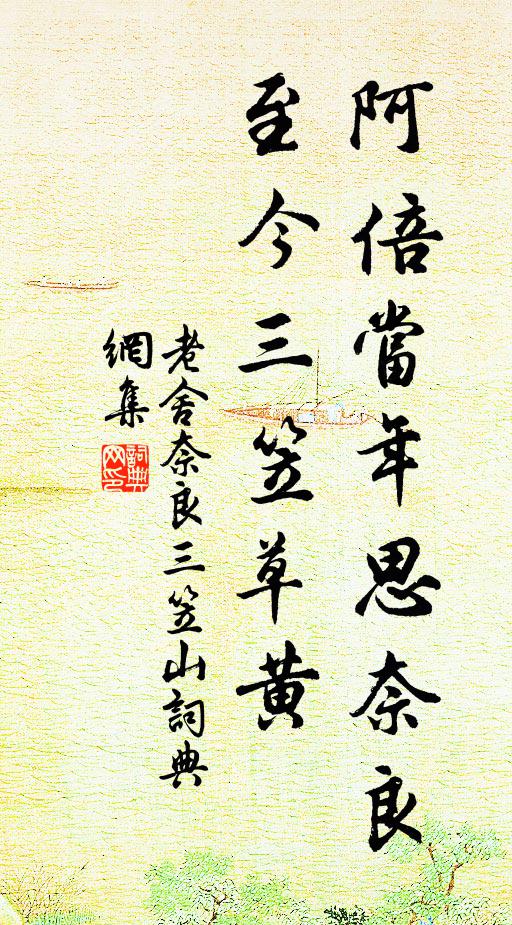 阿倍當年思奈良
至今三笠草黃
老舍奈良三笠山詞典
網集
詞典
网印